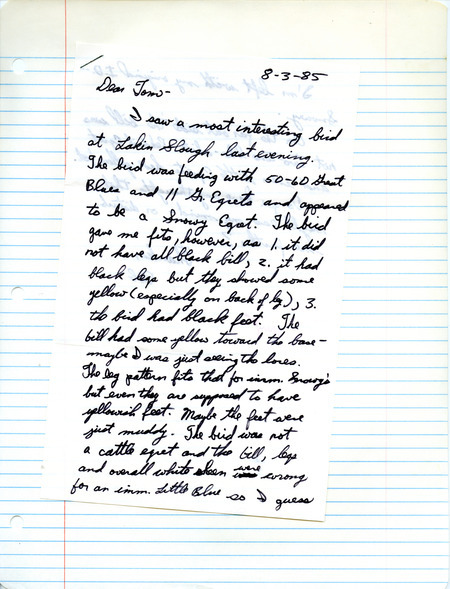 8-3-85
Dear Tom-
I saw a most interesting bird
at Lakin Slough last evening.
The bird was feeding with 50-60 Great
Blues and 11 Gr. Egrets and appeared
to be a Snowy Egret. The bird
gave me fits, however, as 1. it did
not have all black bill, 2. it had
black legs but they showed some
yellow (especially on back of leg), 3.
the bird had black feet. The
bill had some yellow toward the base-
maybe I was just seeing the lores.
The leg pattern fits that for imm. Snowy's
but even they are supposed to have
yellowish feet. Maybe the feet were
just muddy. The bird was not
a cattle egret and the bill, legs
and overall white were wrong
for an imm. Little Blue so I guess